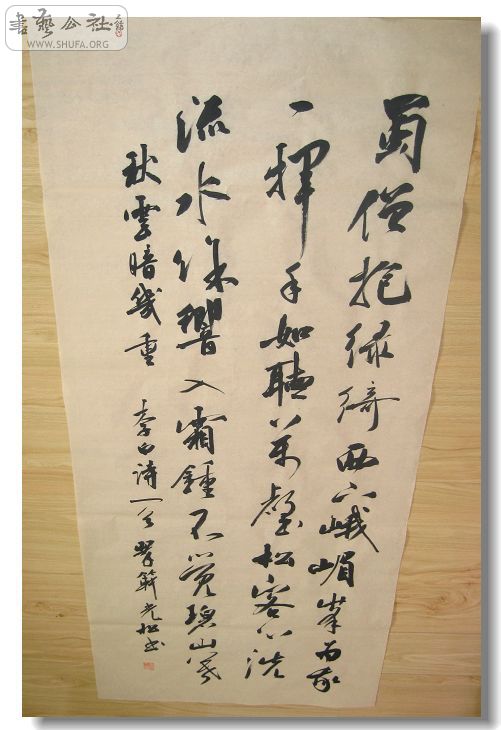 書藝公社
WWW.SHUFA.ORG
蜀僧抱绿綺西下峨嵋峯为我
一揮手如聽万壑松客心洗
流水馀響入霜鍾不覺碧山暮
秋雲暗幾重 李白诗一首 光松书